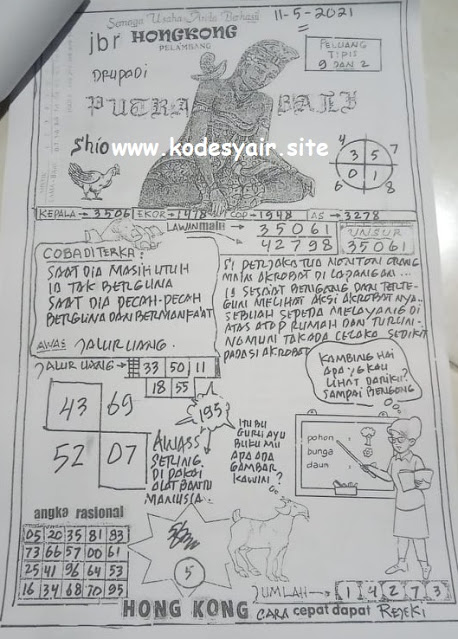 Semoga Usaha Anda Berhasil
11-5-2021
jbr HONGKONG
PELAMBANG
PELUANG
TIPIS
9 DAN 2
DRUPADI
PUTRA BALI
shio
www.kodesyair.site
4 5
3 5
0 1
6 7 8
KEPALA → 3506 EKOR → 1478 COP → 1948 AS → 3278
LAWAN main → 35061
42798
UNSUR
35061
COBA DITERKA:
SAAT DIA MASIH UTUH
IA TAK BERGUNA
SAAT DIA PECAH-PECAH
BERGUNA DAN BERMANFAAT
AWAS JALUR UANG.
SI PERJAKA TUA NONTON ORANG
MAIN AKROBAT DI LAPANGAN...
IA SEMPAT BENGONG DAN TERTE-
GUN MELIHAT AKSI AKROBATNYA..
SEBUAH SEPEDA MELAYANG DI
ATAS ATAP RUMAH DAN TURUN.
NAMUN TAK ADA CELAKA SEDIKIT
PADA SI AKROBAT
JALUR UANG → 33 50 11
18 55
KAMBING HAI
APA YG KAU
LIHAT DARIKU?
SAMPAI BENGONG
43 69
52 07
195
AWASS
SERING
DI PAKAI
ALAT BANTU
MANUSIA.
ITU BU
GURU AYU
BUKU MU
APA ADA
GAMBAR
KAWIN?
pohon
bunga
daun
angka rasional
05 20 35 81 93
73 66 57 00 61
25 41 96 64 53
16 34 68 70 95
5
JUMLAH → 1 4 2 7 3
HONG KONG CARA cepat dapat REJEKI